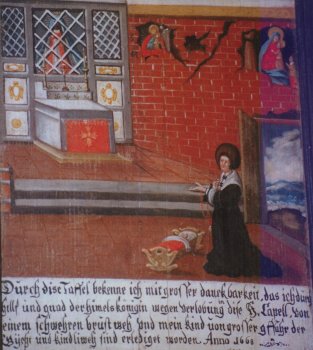 Durch dise Taffel bekenne ich mit grosser danckbarkeit, das ich durch
hilff und gnad der himels königin wegen verlobung in dise H. Capell, von
einem schwehren brust weh und mein kind von grosser gffahr der
und kindliweh sind erlediget worden. Anno 1668